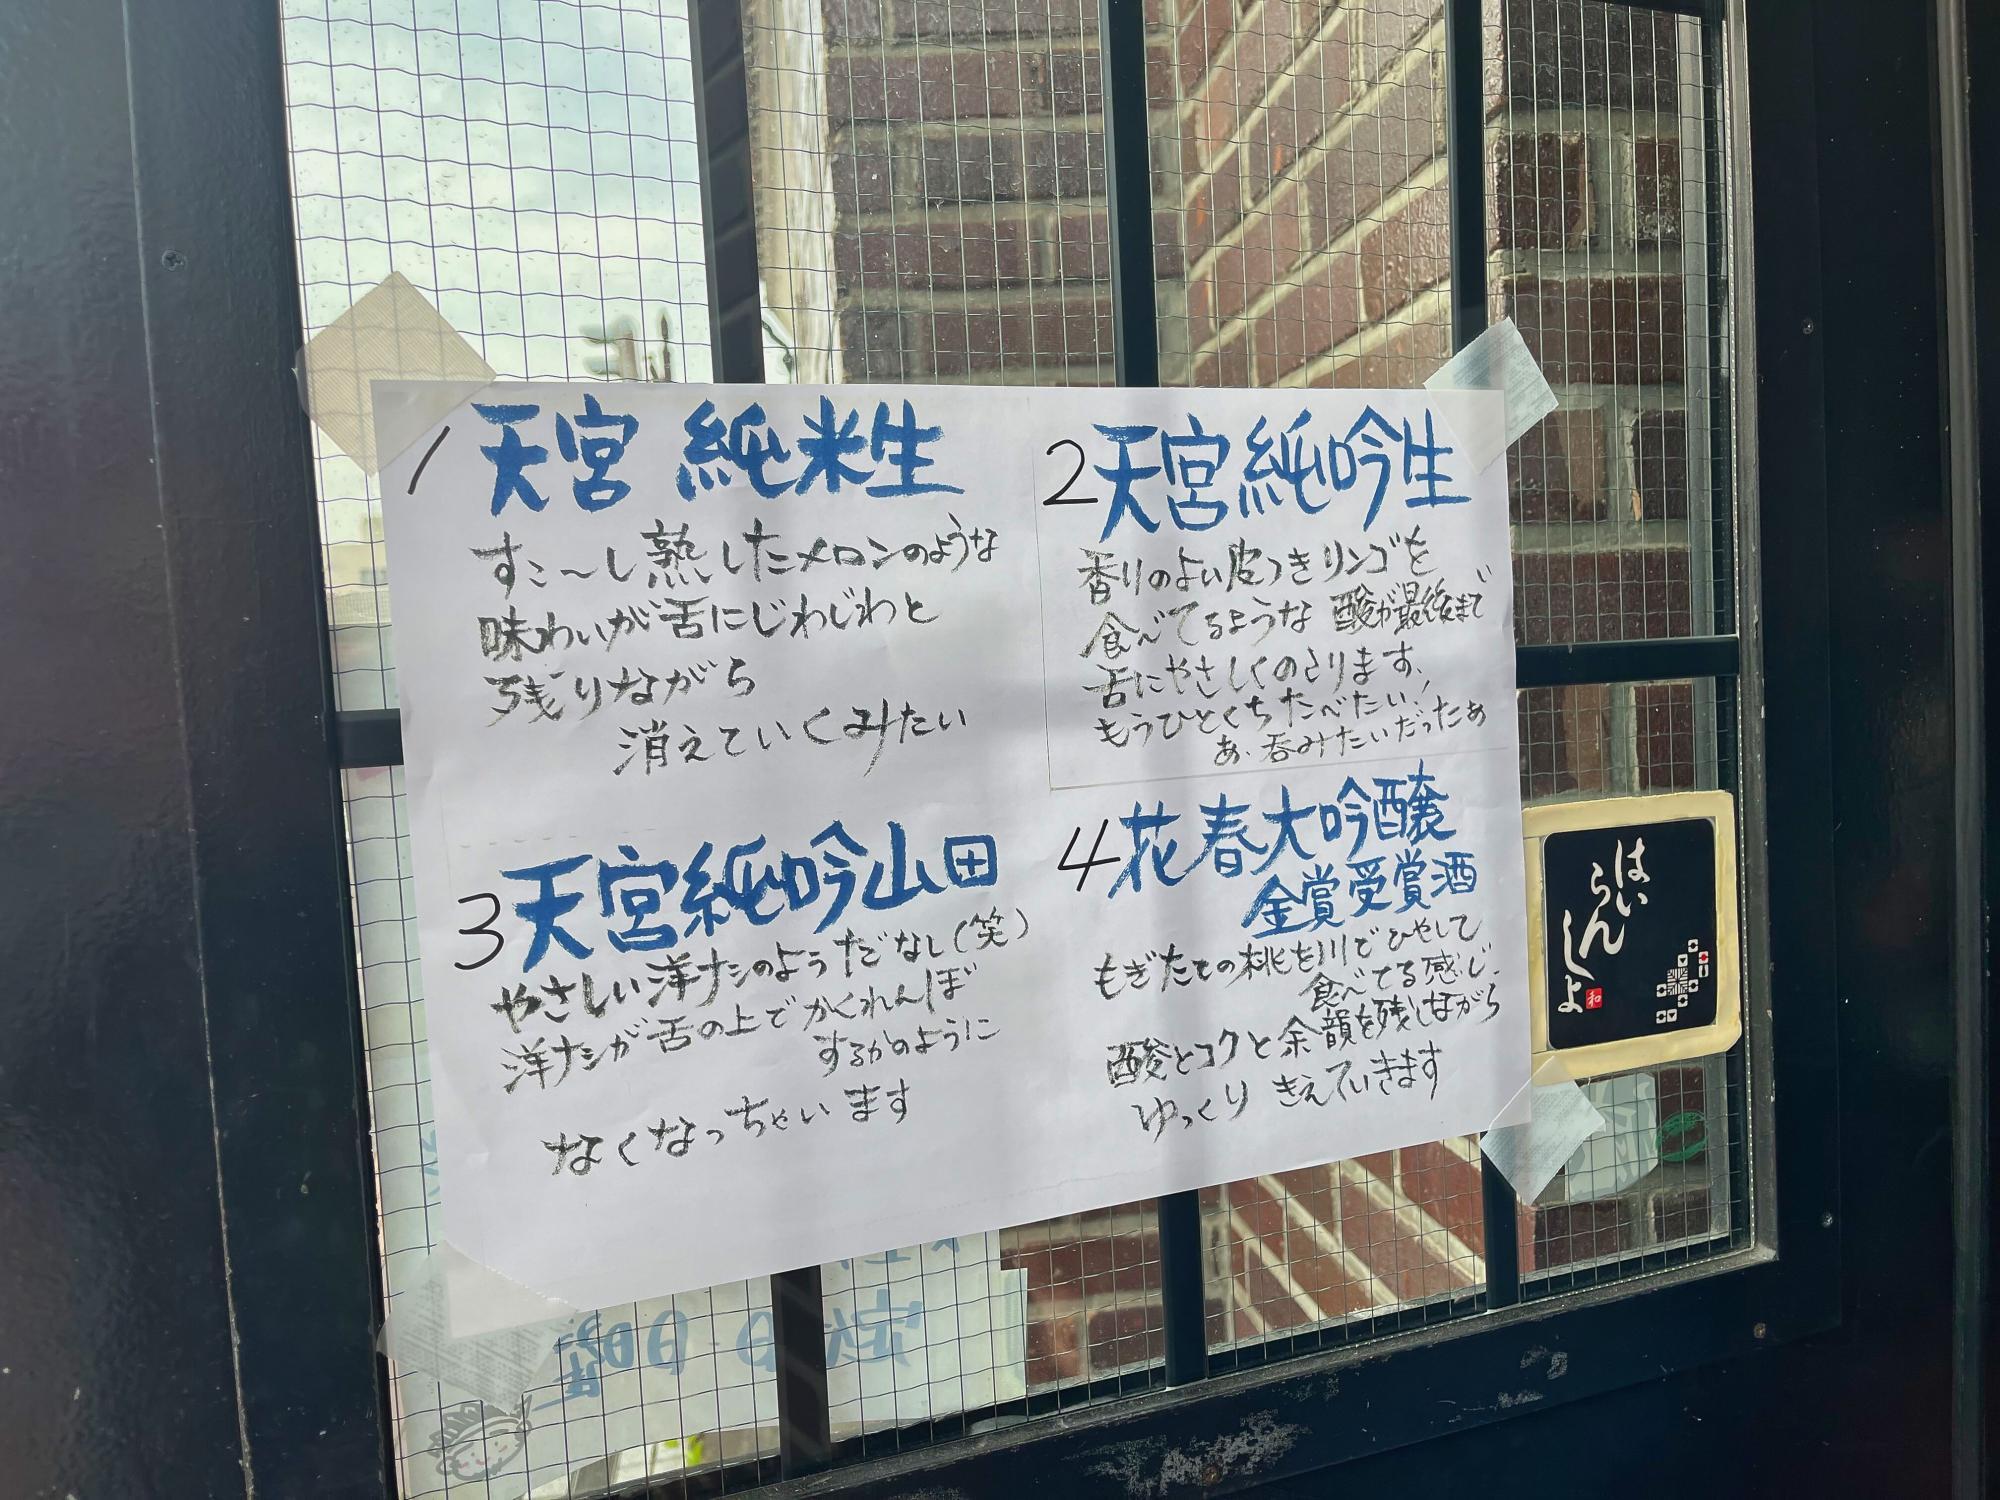 1 天宮 純米生
すこ〜し熟したメロンのような
味わいが舌にじわじわと
残りながら
消えていくみたい
2 天宮純吟生
香りのよい皮つきリンゴを
食べてるような 酸が最後まで
舌にやさしくのこります、
もうひとくちたべたい!
あ、呑みたいだったぁ
3 天宮純吟山田
やさしい洋ナシのようだなし(笑)
洋ナシが舌の上でかくれんぼ
するかのように
なくなっちゃいます
4 花春大吟醸
金賞受賞酒
もぎたての桃を川でひやして
食べてる感じ、
酸とコクと余韻を残しながら
ゆっくり きえていきます
はい
らん
しょ
和
定休日・日曜